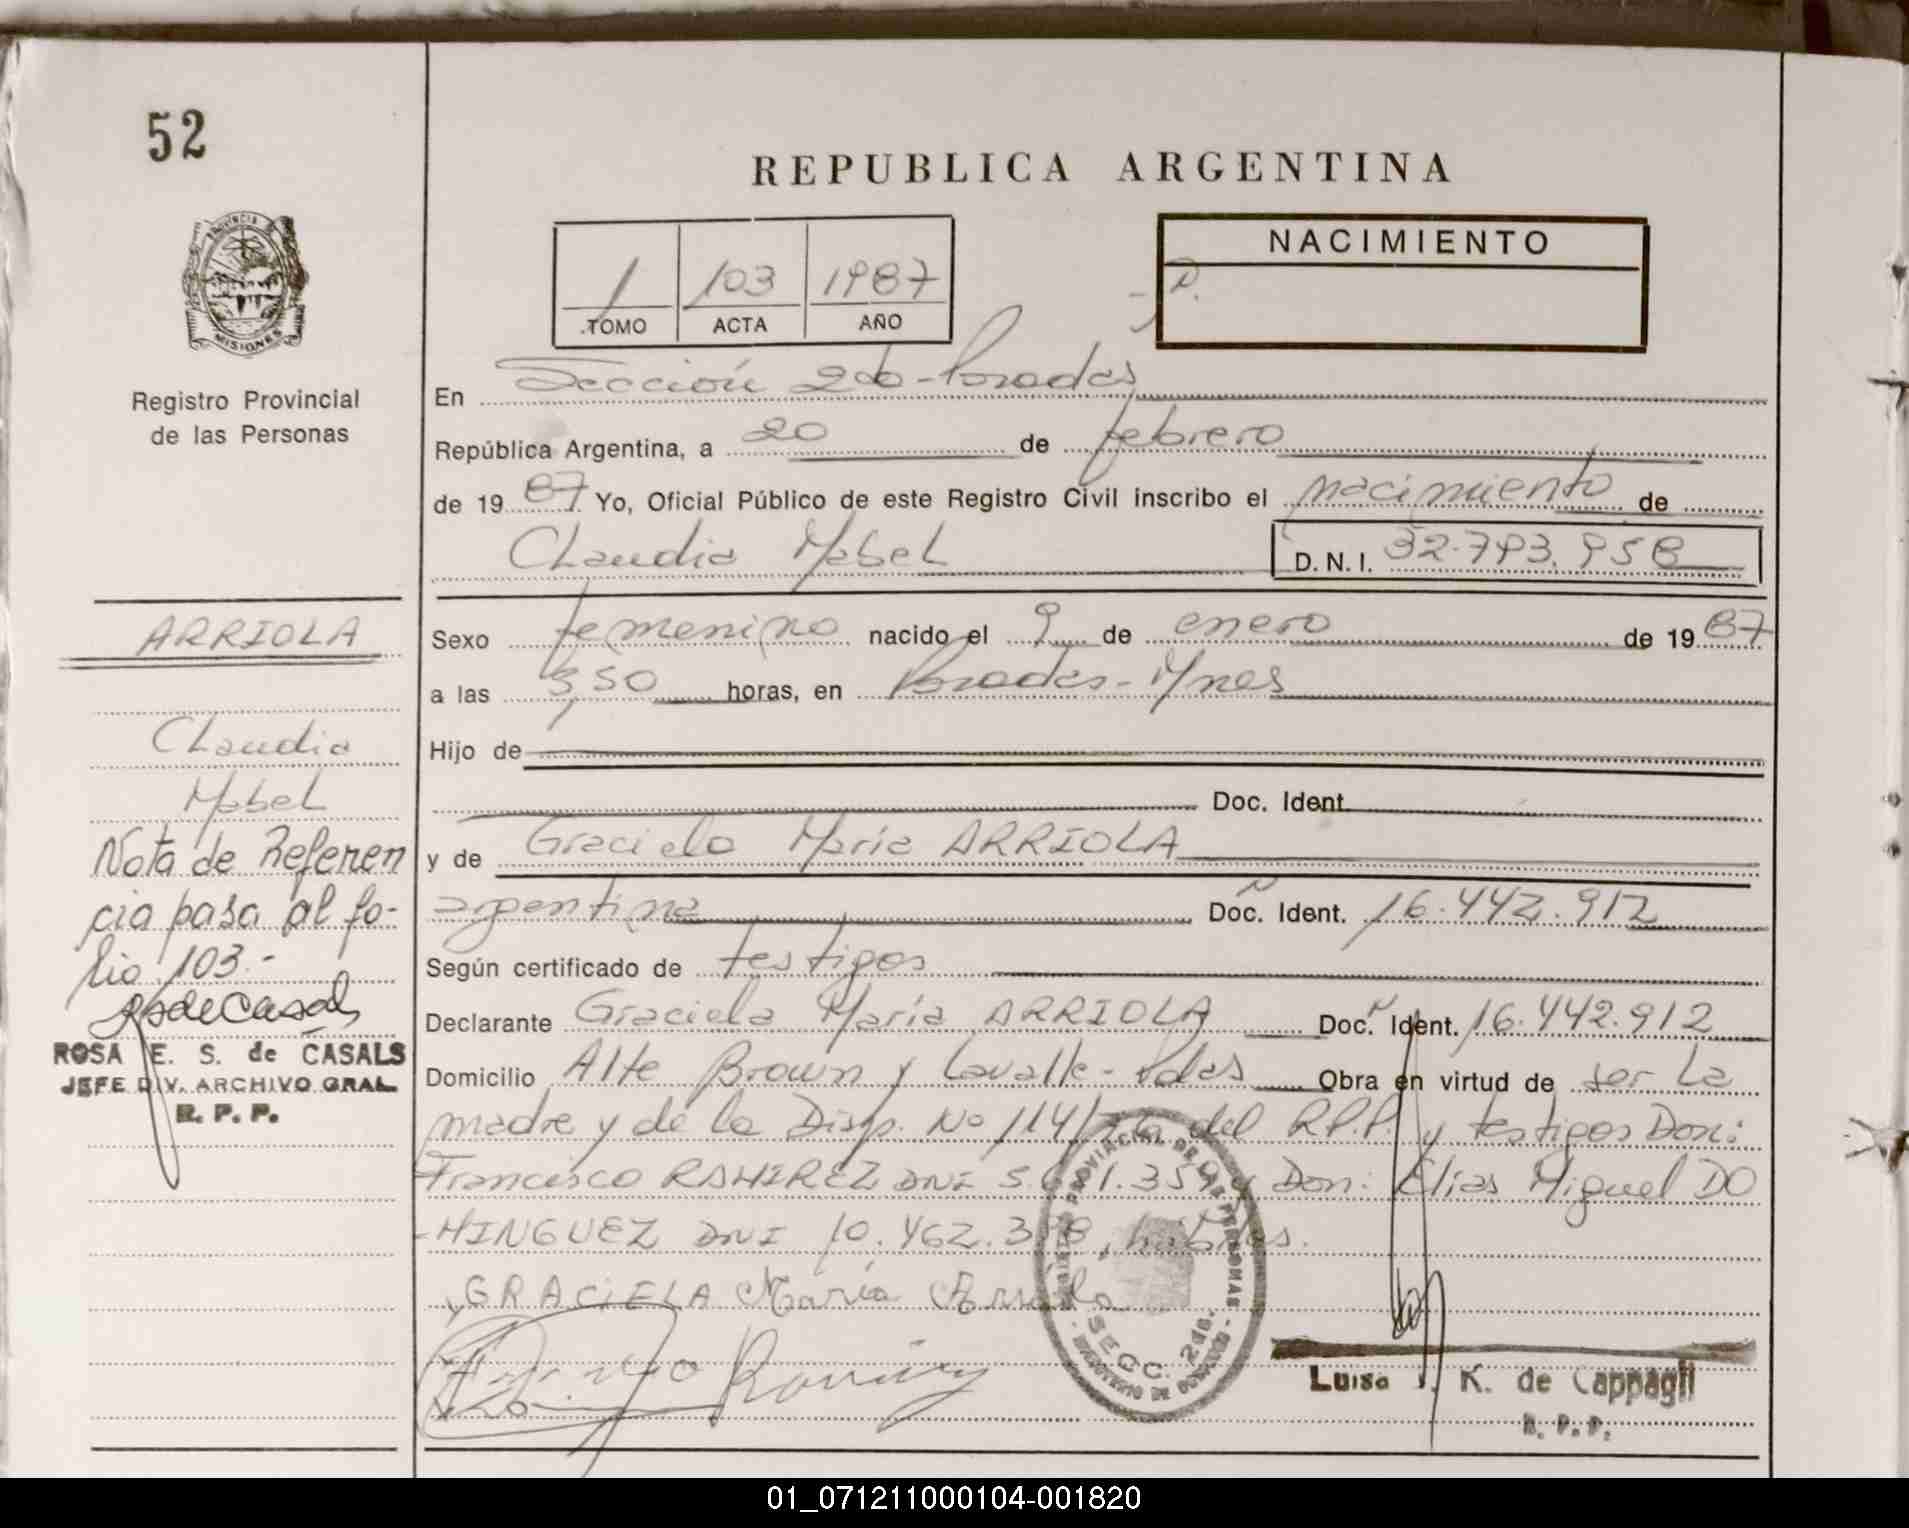 52
REPUBLICA ARGENTINA
PROVINCIA
MISIONES
Registro Provincial
de las Personas
1 103 1987
TOMO ACTA AÑO
NACIMIENTO
En Sección 2da - Posadas
República Argentina, a 20 de febrero
de 1987 Yo, Oficial Público de este Registro Civil inscribo el nacimiento de
Claudia Mabel D.N.I. 32.793.958
ARRIOLA
Sexo femenino nacido el 9 de enero de 1987
a las 3,50 horas, en Posadas - Mnes
Claudia
Mabel
Hijo de
Doc. Ident.
y de Graciela María ARRIOLA
argentina Doc. Ident. 16.442.912
Nota de Referen
cia pasa al fo-
lio 103.-
Según certificado de testigos
Declarante Graciela María ARRIOLA Doc. Ident. 16.442.912
ROSA E. S. de CASALS
JEFE DIV. ARCHIVO GRAL
R. P. P.
Domicilio Alte Brown y Lavalle - Pdas Obra en virtud de ser la
madre y de la Disp. No 114/ del R.P.P. y testigos Don:
Francisco RAMIREZ DNI y Don: Elias Miguel DO
-MINGUEZ DNI 10.462.
GRACIELA María Arriola
REGISTRO PROVINCIAL DE LAS PERSONAS
SECC. 2da.
Luisa K. de Cappagli
R. P. P.
01_071211000104-001820